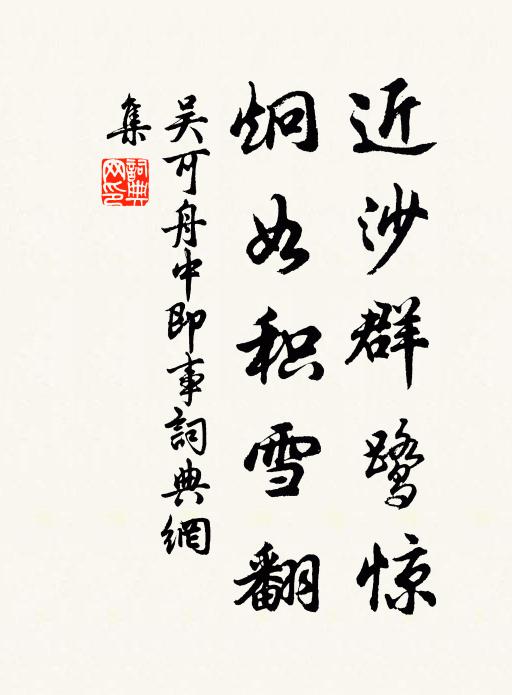 近沙群鹭惊
炯如积雪翻
吴可舟中即事詞典網
集
詞典
网印